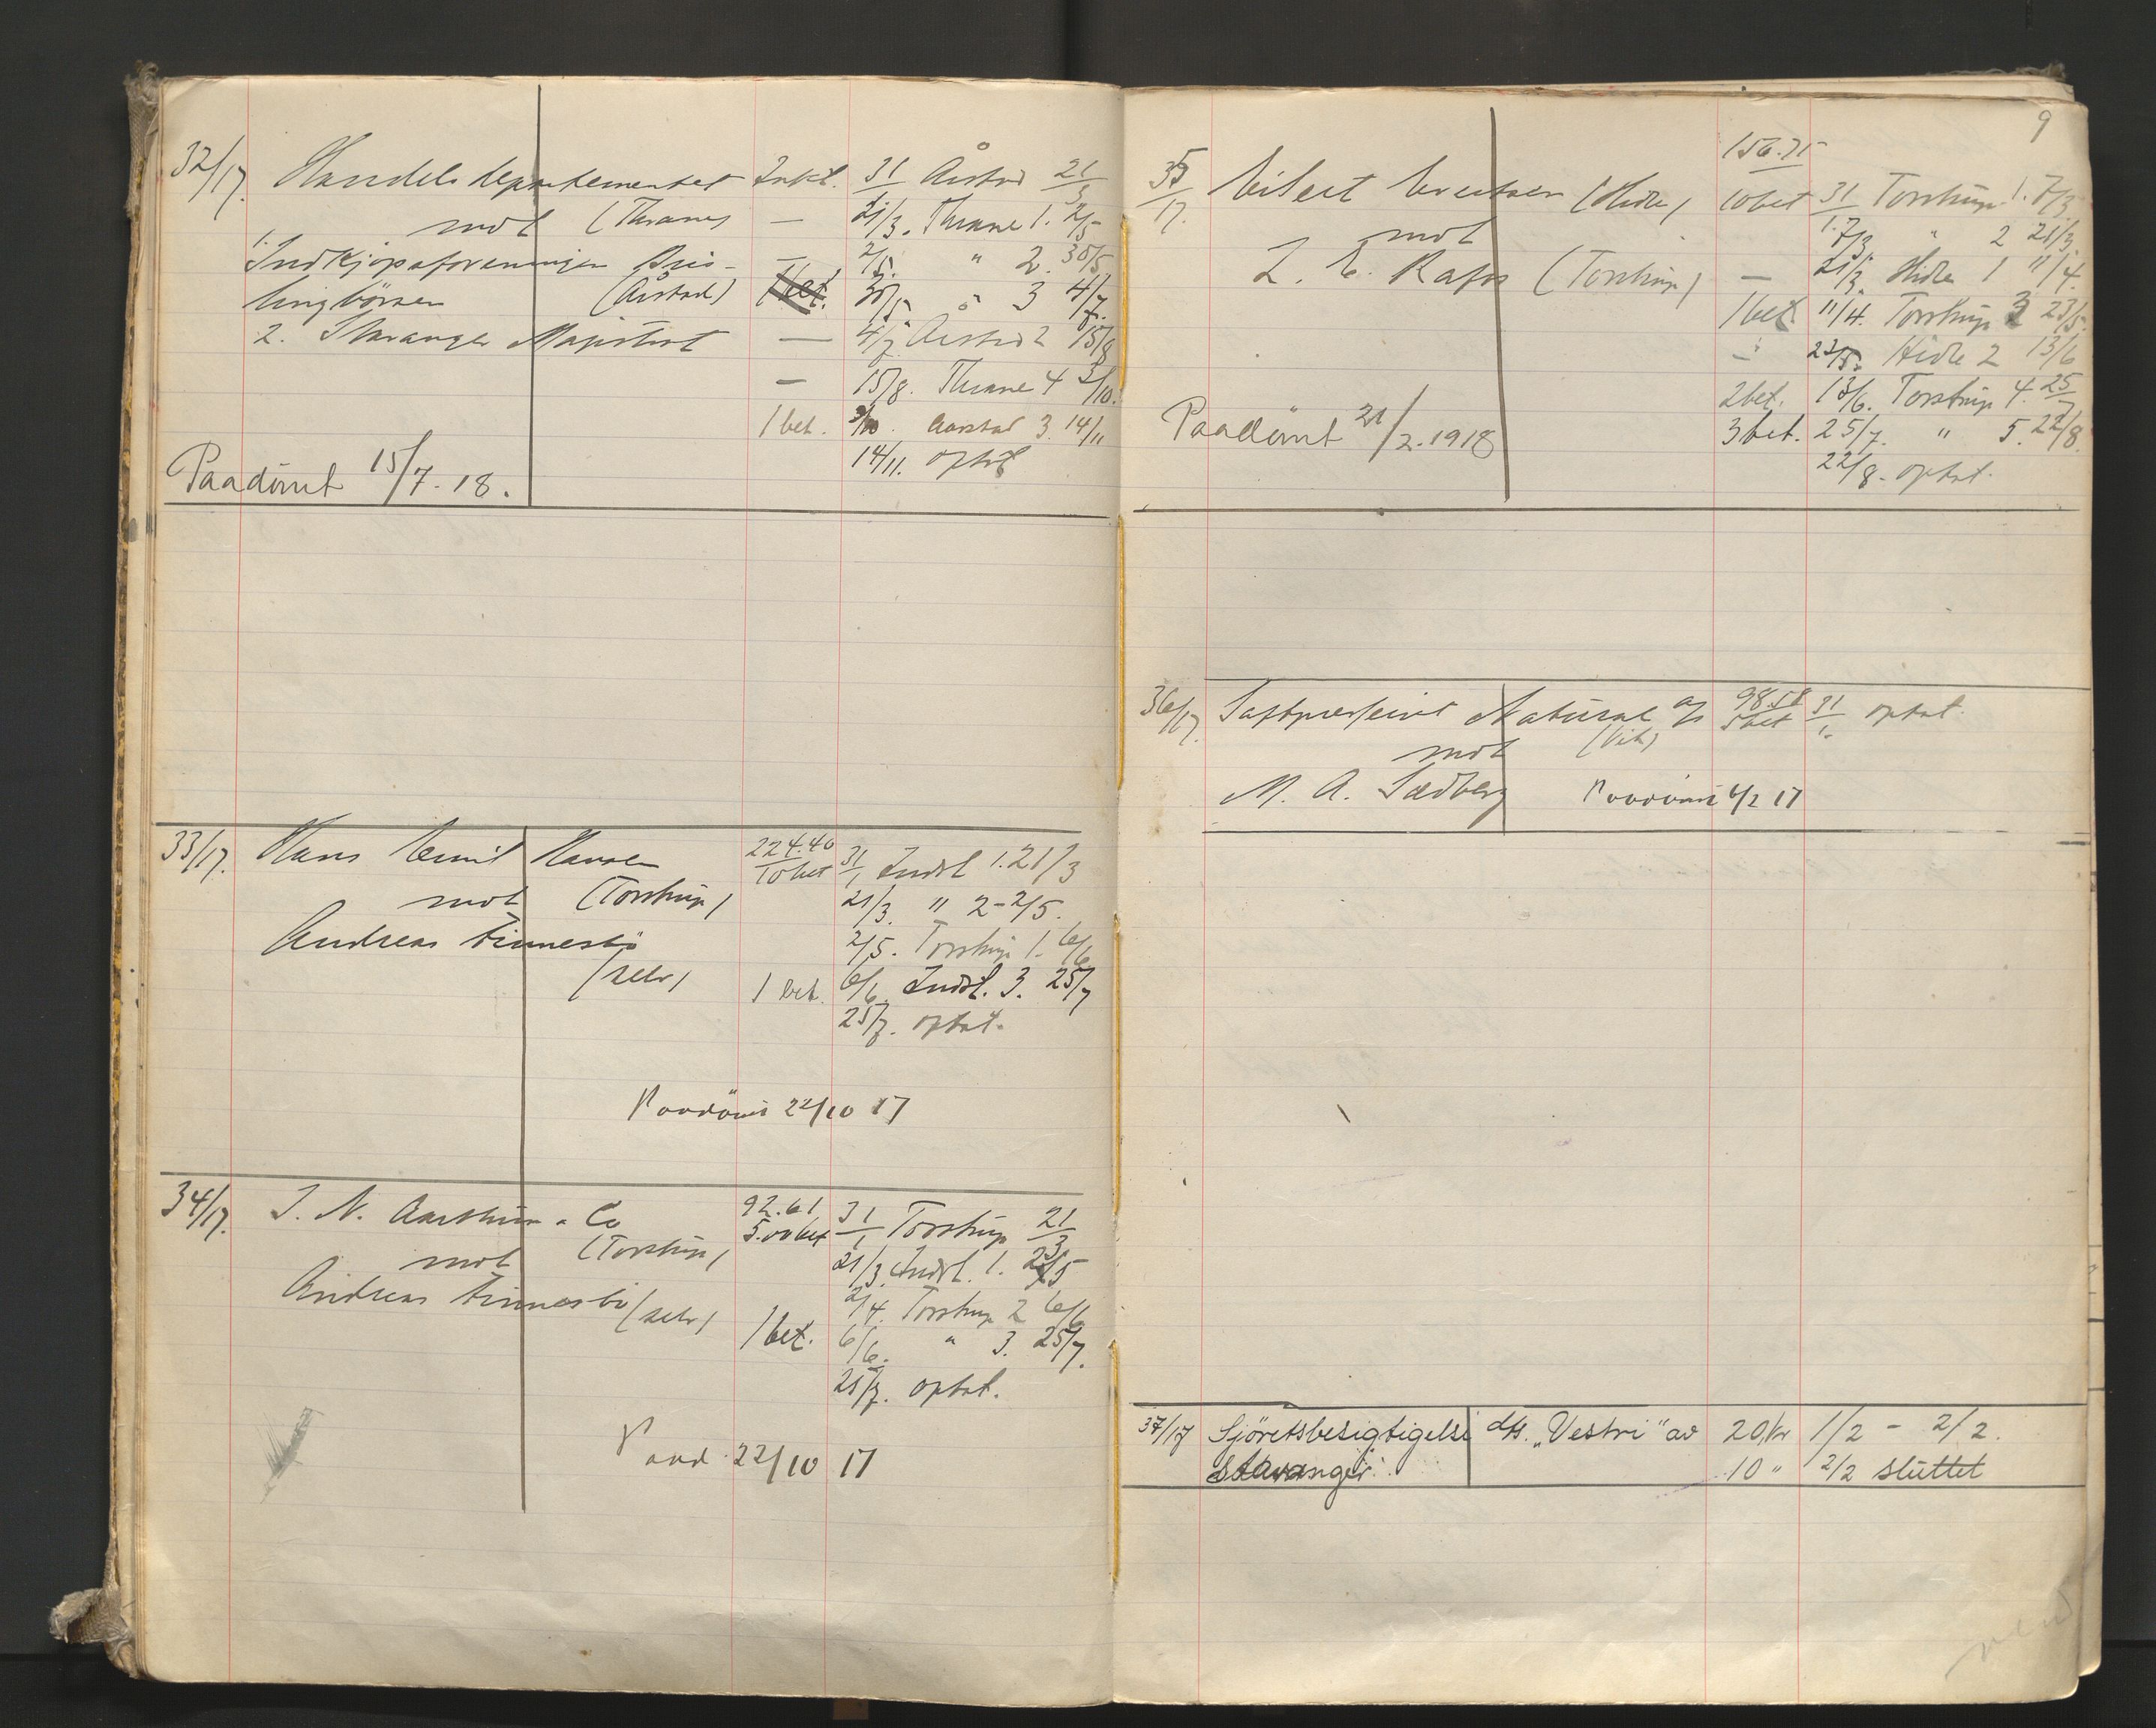 32/17. Handelsdepartementet Inkl. 31 Årstad 21/3
mot (Thranes — 21/3. Thrane 1. 2/5
1. Indkjøpsforeningen — 2/5. " 2. 30/5
(Årstad) 1 bet. 30/5 " 3 4/7.
2. Stavanger Magistrat — 4/7 Årstad 2 15/8
— 15/8. Thrane 4 3/10.
1 bet. 3/10. Aarstad 3 14/11
14/11. optat
Paadömt 15/7. 18.
33/17. Hans Emil Hansen 224.40 10 bet 31/1 Indst 1. 21/3
mot (Torstrup) 21/3 " 2 - 2/5.
Andreas Finnesbö 2/5. Torstrup 1. 6/6
(selv) 1 bet. 6/6 Indst. 3. 25/7
25/7. optat.
Paadömt 22/10 17
34/17. I. N. Co 92.61 5.00 bet 31/1 Torstrup 21/3
mot (Torstrup) 21/3. Indst. 1. 2/5
Andreas Finnesbö (selv) 2/4. Torstrup 2 6/6
1 bet. 6/6. " 3. 25/7.
25/7. optat.
Paad. 22/10 17
9
156.75
35/17. Eilert Evertsen (Hidle) 10 bet 31 Torstrup 1. 7/3
mot 7/3 " 2 21/3.
L. E. (Torstrup) — 21/3. Hidle 1 11/4.
1 bet. 11/4. Torstrup 3 23/5.
—" 23/5. Hidle 2 13/6
2 bet. 13/6. Torstrup 4. 25/7
3 bet. 25/7. " 5. 22/8.
22/8. optat.
Paadömt 21/2. 1918
36/17. Natural A/S 98.58 5 bet 31/1. optat.
mot (Vik)
M. A. Sædberg Paadömt 6/2 17
37/17 Sjöretsbesigtigelse d/s. „Vestri" av 20 kr 1/2 - 2/2.
Stavanger. 10 " 2/2 sluttet